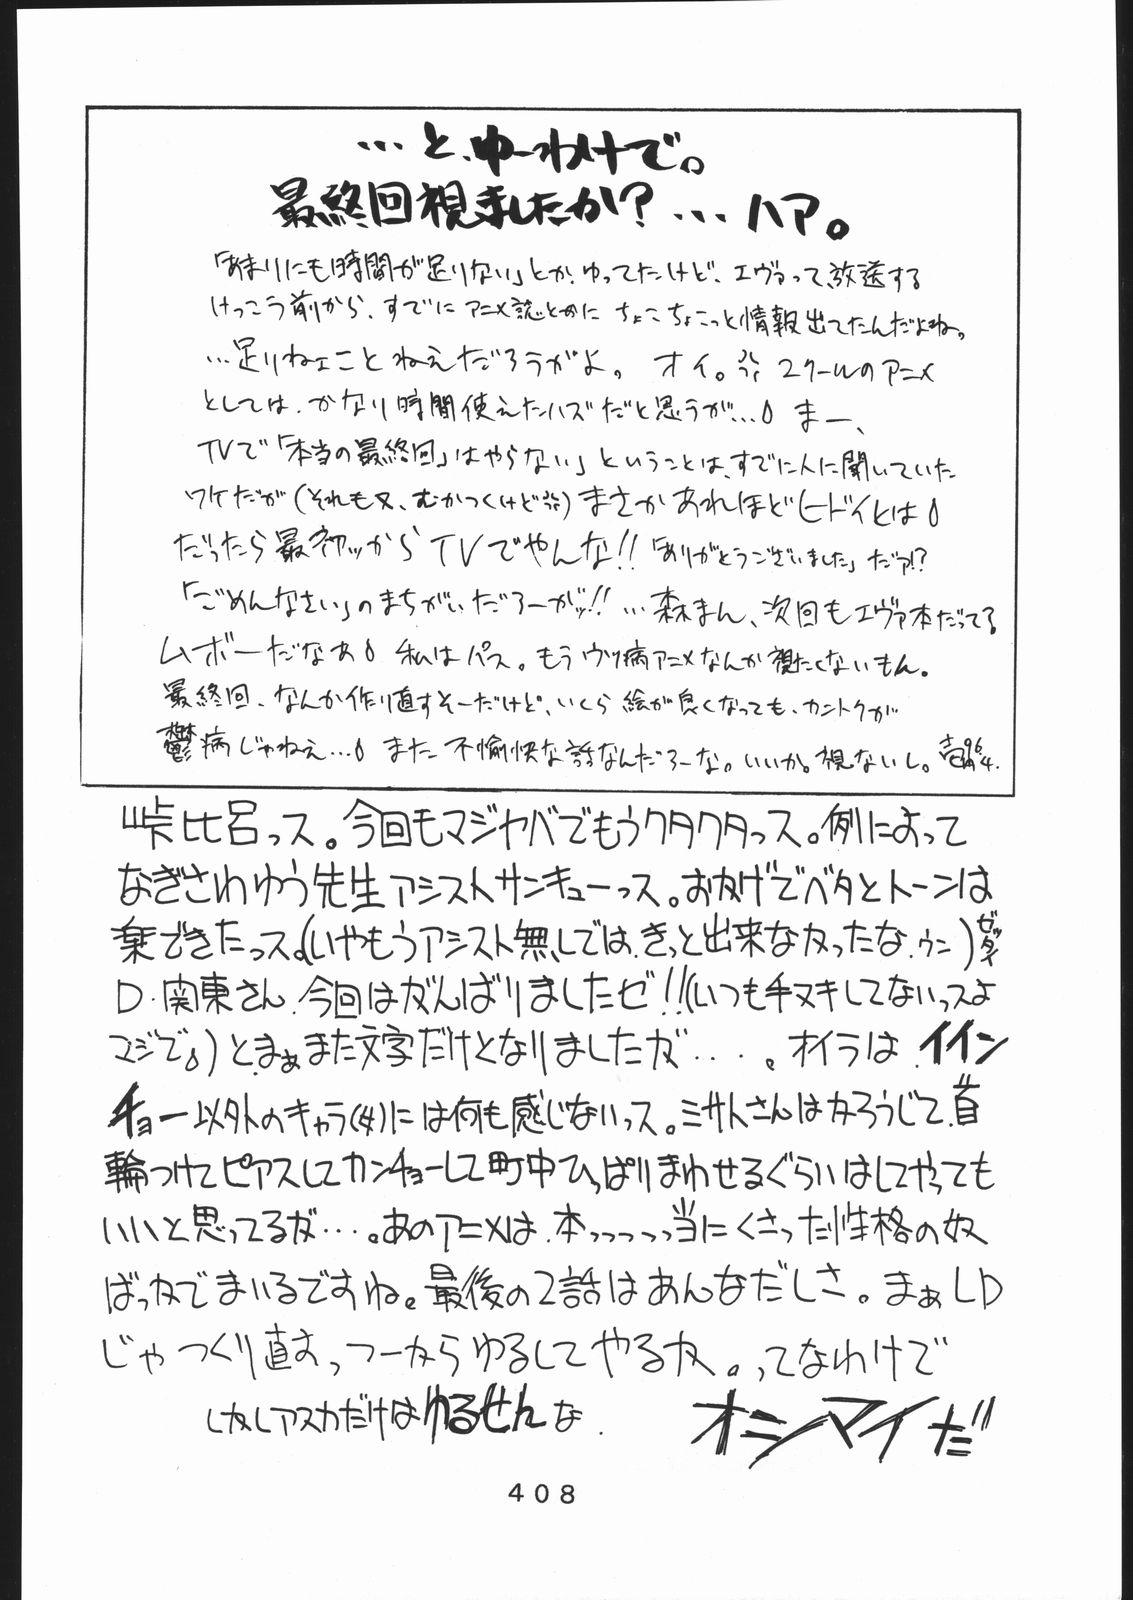 …と、ゆーわけで。
最終回視ましたか？…ハア。
「あまりにも時間が足りない」とか、ゆってたけど、エヴァって、放送する
けっこう前から、すでにアニメ誌とかに ちょこちょこっと情報出てたんだよね。
…足りねェことねえだろうがよ。 オイ。 2クールのアニメ
としては、かなり時間使えたハズだと思うが… まー、
TVで「本当の最終回」はやらない」ということは、すでに人に聞いていた
ワケだが(それも又、むかつくけど)まさかあれほどヒドイとは
だったら最初ッからTVでやんな!!「ありがとうございました」だァ!?
「ごめんなさい」のまちがいだろーがッ!! …森まん、次回もエヴァ本だってる
ムボーだなぁ 私はパス。もうウツ病アニメなんか視たくないもん。
最終回、なんか作り直すそーだけど、いくら絵が良くなっても、カントクが
鬱病じゃねえ… また不愉快な話なんだろーな。いいか。視ないし。 '96.4.
峠比呂っス。今回もマジヤバでもうクタクタっス。例によって
なぎさわゆう先生アシストサンキューっス。おかげでベタとトーンは
楽できたっス。(いやもうアシスト無しでは、きっと出来なかったな、ウン)ゼッタイ
D・関東さん、今回はがんばりましたゼ!!(いつも手ヌキしてないっスよ
マジで)とまぁまた文字だけとなりましたが・・・・。オイラは、イイン
チョー以外のキャラ(女)には何も感じないっス。ミサトさんはかろうじて、首
輪つけてピアスしてカンチョーして町中ひっぱりまわせるぐらいはしてやっても
いいと思ってるが・・・・。あのアニメは、本っっっっっ当にくさった性格の奴
ばっかでまいるですね。最後の2話はあんなだしさ。まぁLD
じゃつくり直すっつーからゆるしてやるか。ってなわけで
しかしアスカだけはゆるせんな. オシマイだ
408